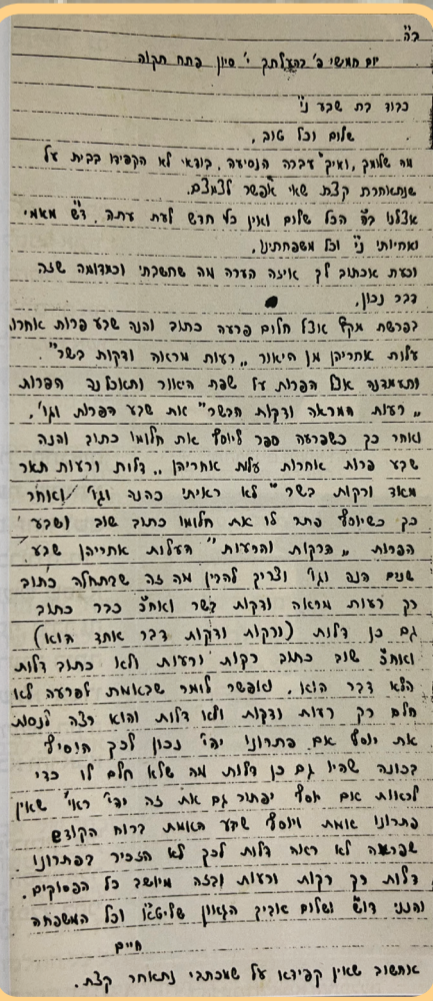 ב"ה
יום חמישי פ' בהעלתך י' סיון פתח תקוה
כבוד בת שבע ני'
שלום וכל טוב.
מה שלומך, ואיך עברה הנסיעה, בודאי לא הקפידו בבית על
שנתאחרת קצת שאי אפשר לצמצם.
אצלנו ב"ה הכל שלום ואין כל חדש לעת עתה. ד"ש מאמי
ואחיותי ני' וכל משפחתינו.
וכעת אכתוב לך איזה הערה מה שחשבתי וכמדומה שזה
דבר נכון.
בפרשת מקץ אצל חלום פרעה כתוב והנה שבע פרות אחרות
עלות אחריהן מן היאור ,,רעות מראה ודקות בשר".
ותעמדנה אצל הפרות על שפת היאור ותאכלנה הפרות
,,רעות המראה ודקות הבשר" את שבע הפרות וגו'.
ואחר כך כשפרעה ספר ליוסף את חלומו כתוב והנה
שבע פרות אחרות עלות אחריהן ,,דלות ורעות תאר
מאד ורקות בשר" לא ראיתי כהנה וגו' ואחר
כך כשיוסף פתר לו את חלומו כתוב שוב ושבע
הפרות ,,הרקות והרעות" העלות אחריהן שבע
שנים הנה וגו' וצריך להבין מה זה שבתחלה כתוב
רק רעות מראה ודקות בשר ואח"כ כבר כתוב
גם כן דלות (ורקות ודקות דבר אחד הוא)
ואח"כ שוב כתוב רקות ורעות ולא כתוב דלות
הלא דבר הוא. ואפשר לומר שבאמת לפרעה לא
חלם רק רעות ודקות ולא דלות והוא רצה לנסות
את יוסף אם פתרונו יהי' נכון לכך הוסיף
בכונה שהיו גם כן דלות מה שלא חלם לו כדי
לראות אם יוסף יפתור גם את זה יהי' ראי' שאין
פתרונו אמת ויוסף שבע האמת ברוח הקודש
שפרעה לא ראה דלות לכך לא הזכיר בפתרונו
דלות רק רקות ורעות ובזה מיושב כל הפסוקים.
והנני דו"ש ושלום אביך הגאון שליט"א וכל המשפחה
חיים
אחשוב שאין קפידא על שמכתבי נתאחר קצת.